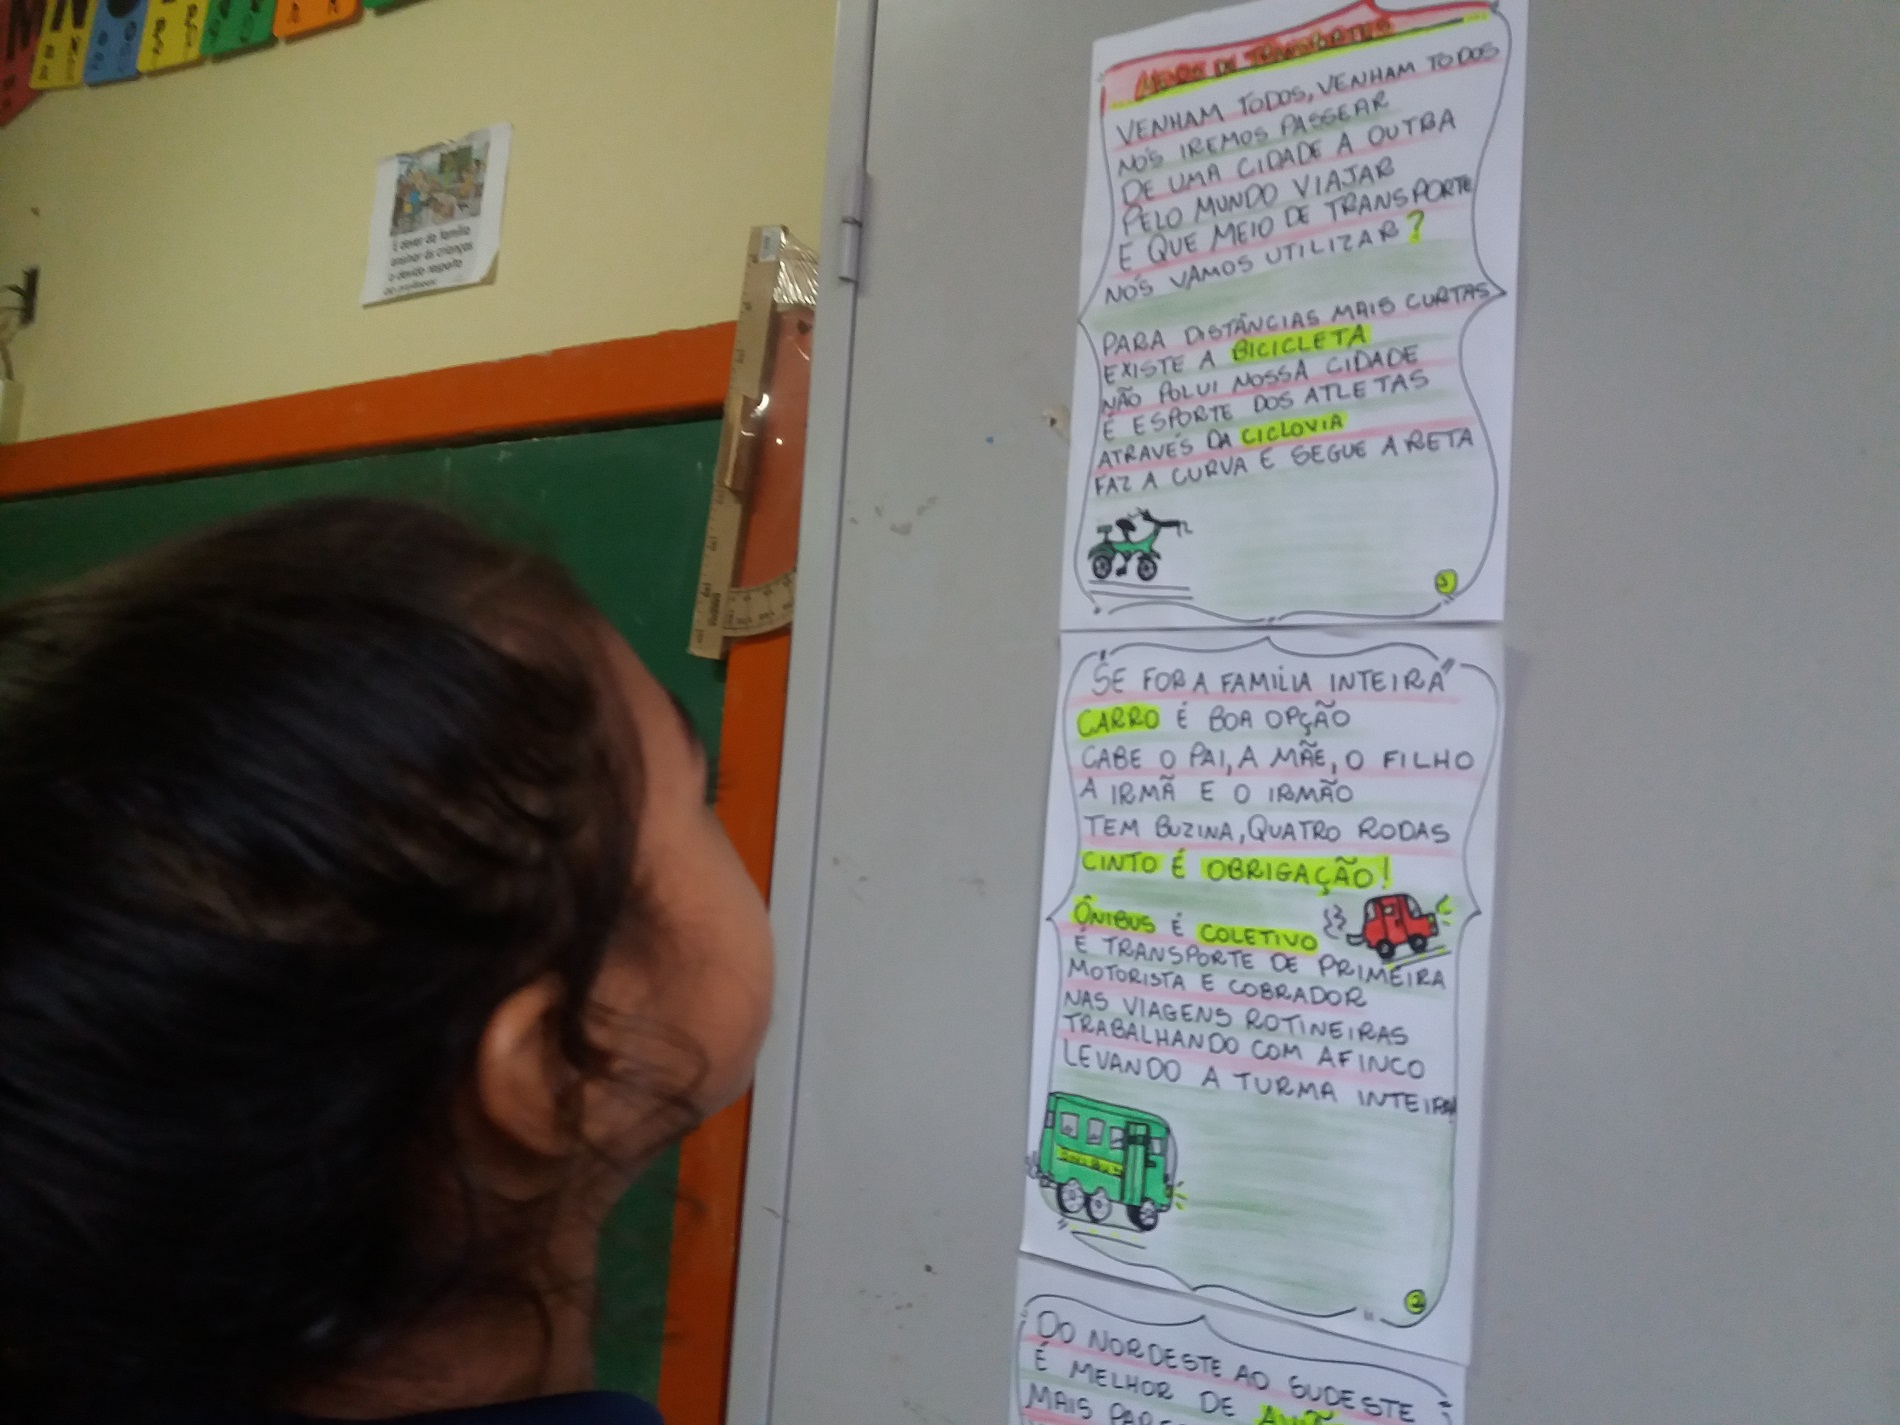 MEIOS DE TRANSPORTES
VENHAM TODOS, VENHAM TODOS
NÓS IREMOS PASSEAR
DE UMA CIDADE A OUTRA
PELO MUNDO VIAJAR
E QUE MEIO DE TRANSPORTE
NÓS VAMOS UTILIZAR?
PARA DISTÂNCIAS MAIS CURTAS
EXISTE A BICICLETA
NÃO POLUI NOSSA CIDADE
É ESPORTE DOS ATLETAS
ATRAVÉS DA CICLOVIA
FAZ A CURVA E SEGUE A RETA
SE FOR A FAMILIA INTEIRA
CARRO É BOA OPÇÃO
CABE O PAI, A MÃE, O FILHO
A IRMÃ E O IRMÃO
TEM BUZINA, QUATRO RODAS
CINTO É OBRIGAÇÃO!
ÔNIBUS É COLETIVO
É TRANSPORTE DE PRIMEIRA
MOTORISTA E COBRADOR
NAS VIAGENS ROTINEIRAS
TRABALHANDO COM AFINCO
LEVANDO A TURMA INTEIRA
2
DO NORDESTE AO SUDESTE
É MELHOR DE
MAIS
É dever da família
ensinar às crianças
o devido respeito